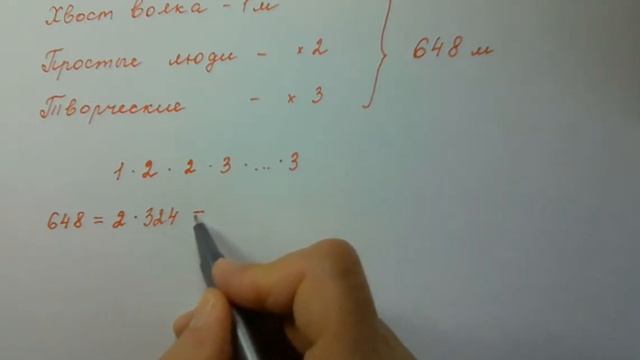 Хвост волка - 1м
Простые люди - ×2
Творческие - ×3
648 м
1·2·2·3·...·3
648 = 2·324 =